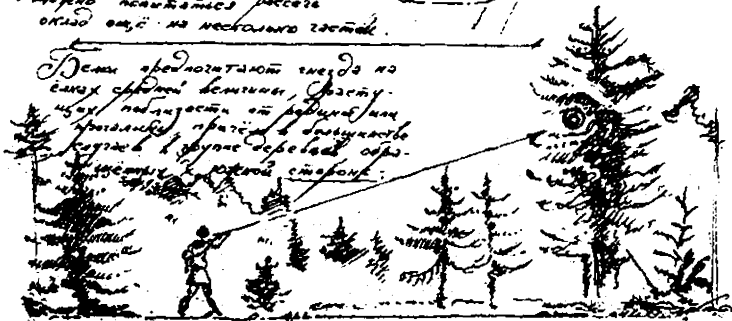 попытаться рассечь
оклад ещё на несколько частей.
Белки предпочитают гнезда на
ёлках средней величины, расту-
щих поблизости от родника или
прогалины, причём в большинстве
случаев в группе деревьев, обра-
щённых к южной стороне.